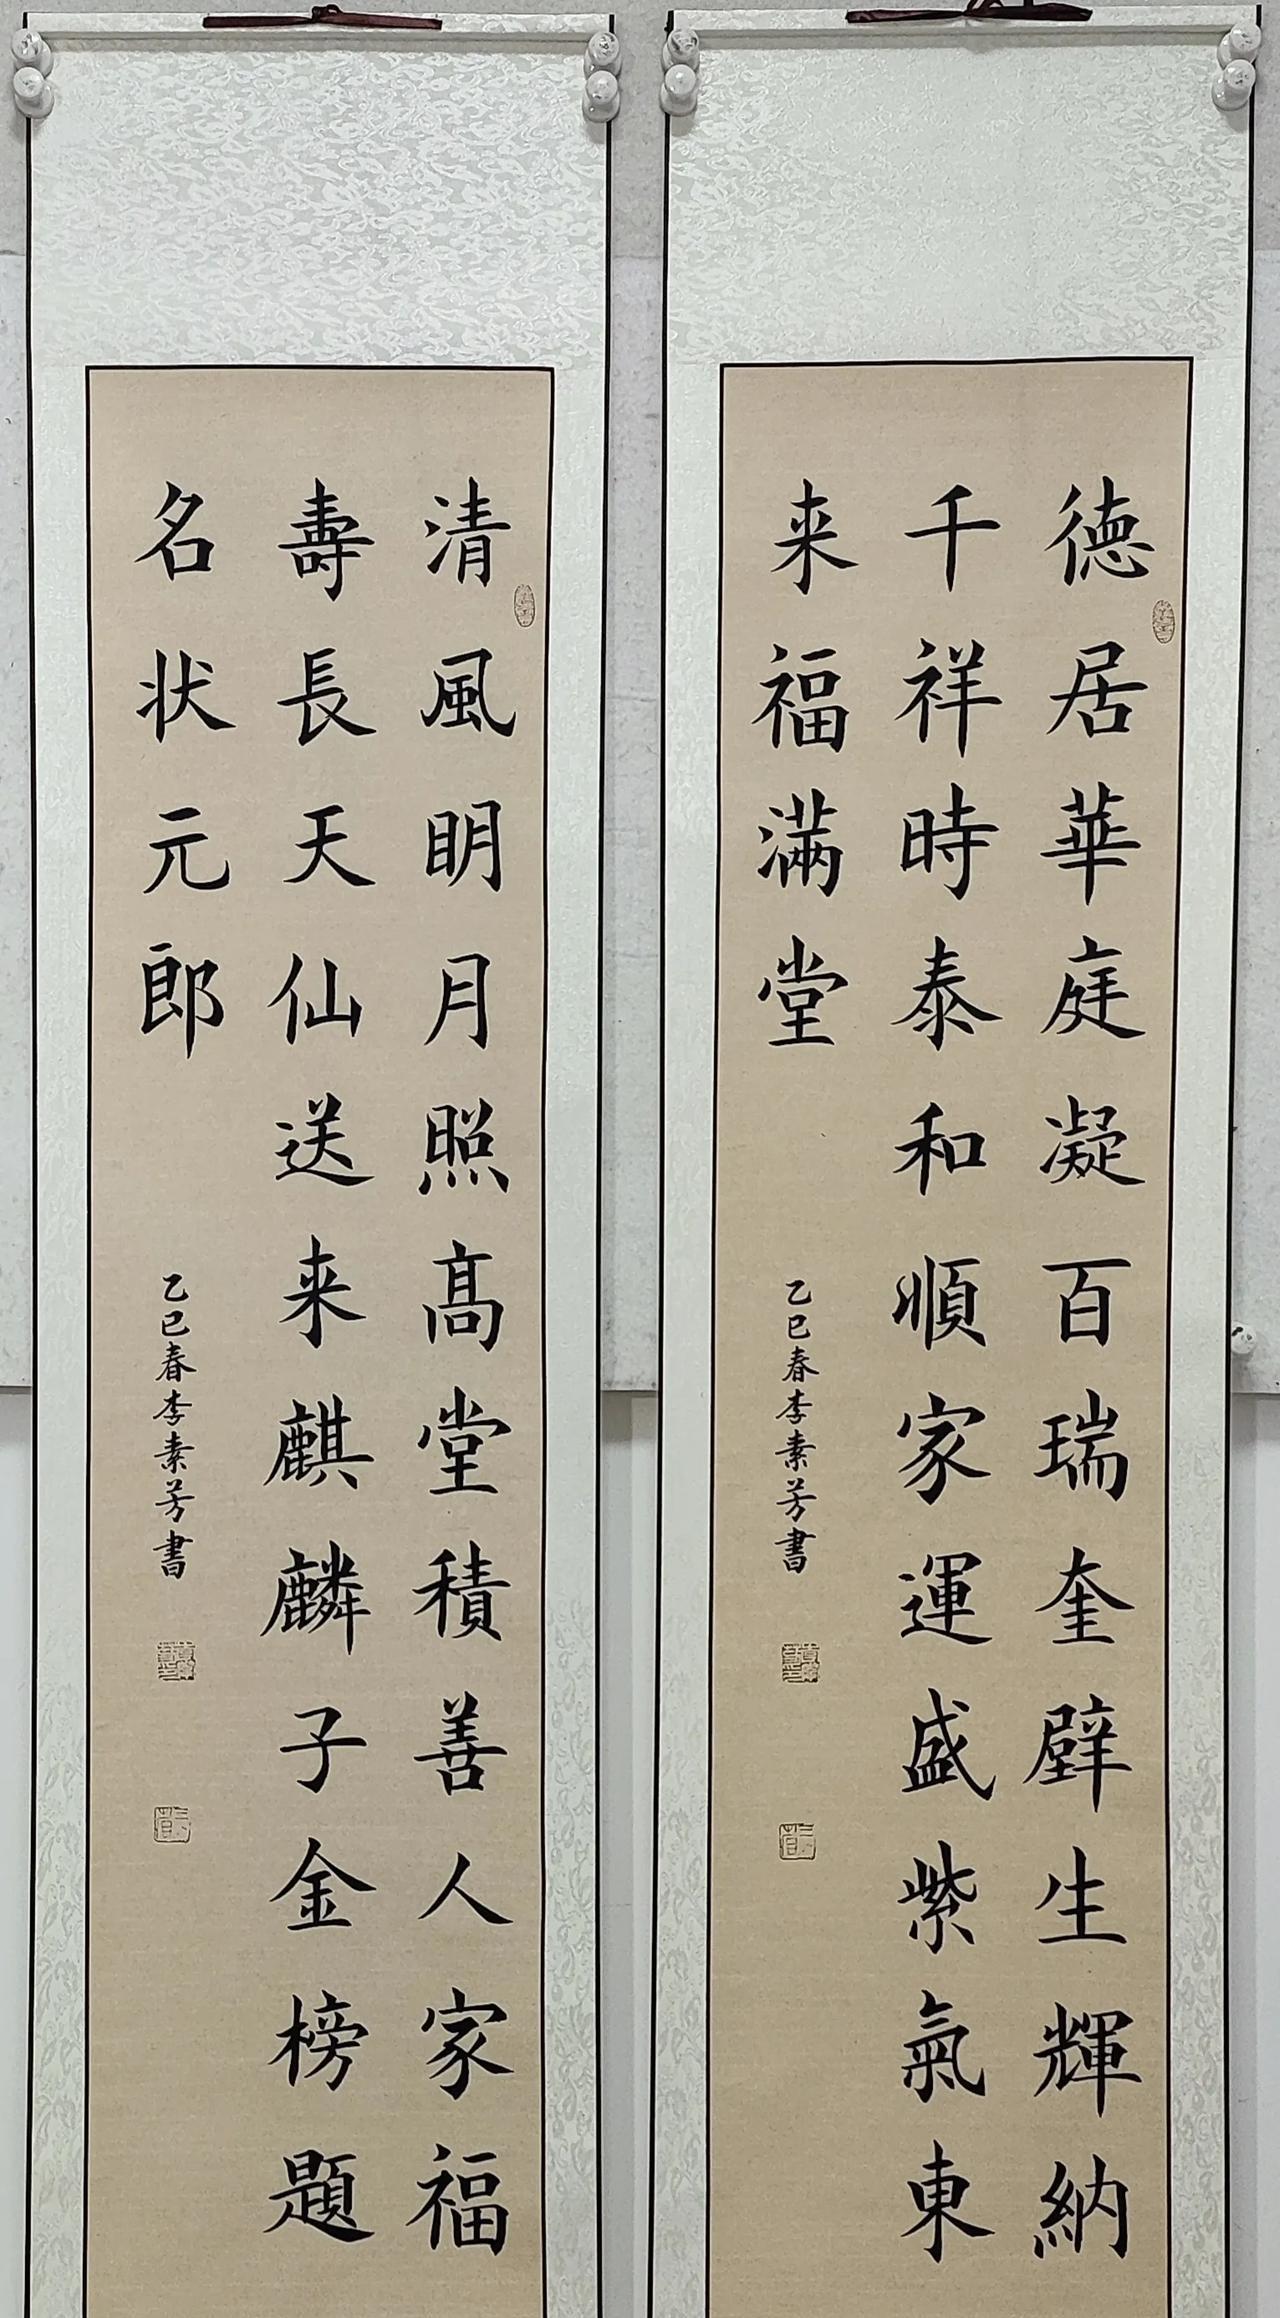 德居華庭凝百瑞奎壁生輝納
千祥時泰和順家運盛紫氣東
来福滿堂
乙巳春李素芳書
清風明月照高堂積善人家福
壽長天仙送来麒麟子金榜題
名状元郎
乙巳春李素芳書